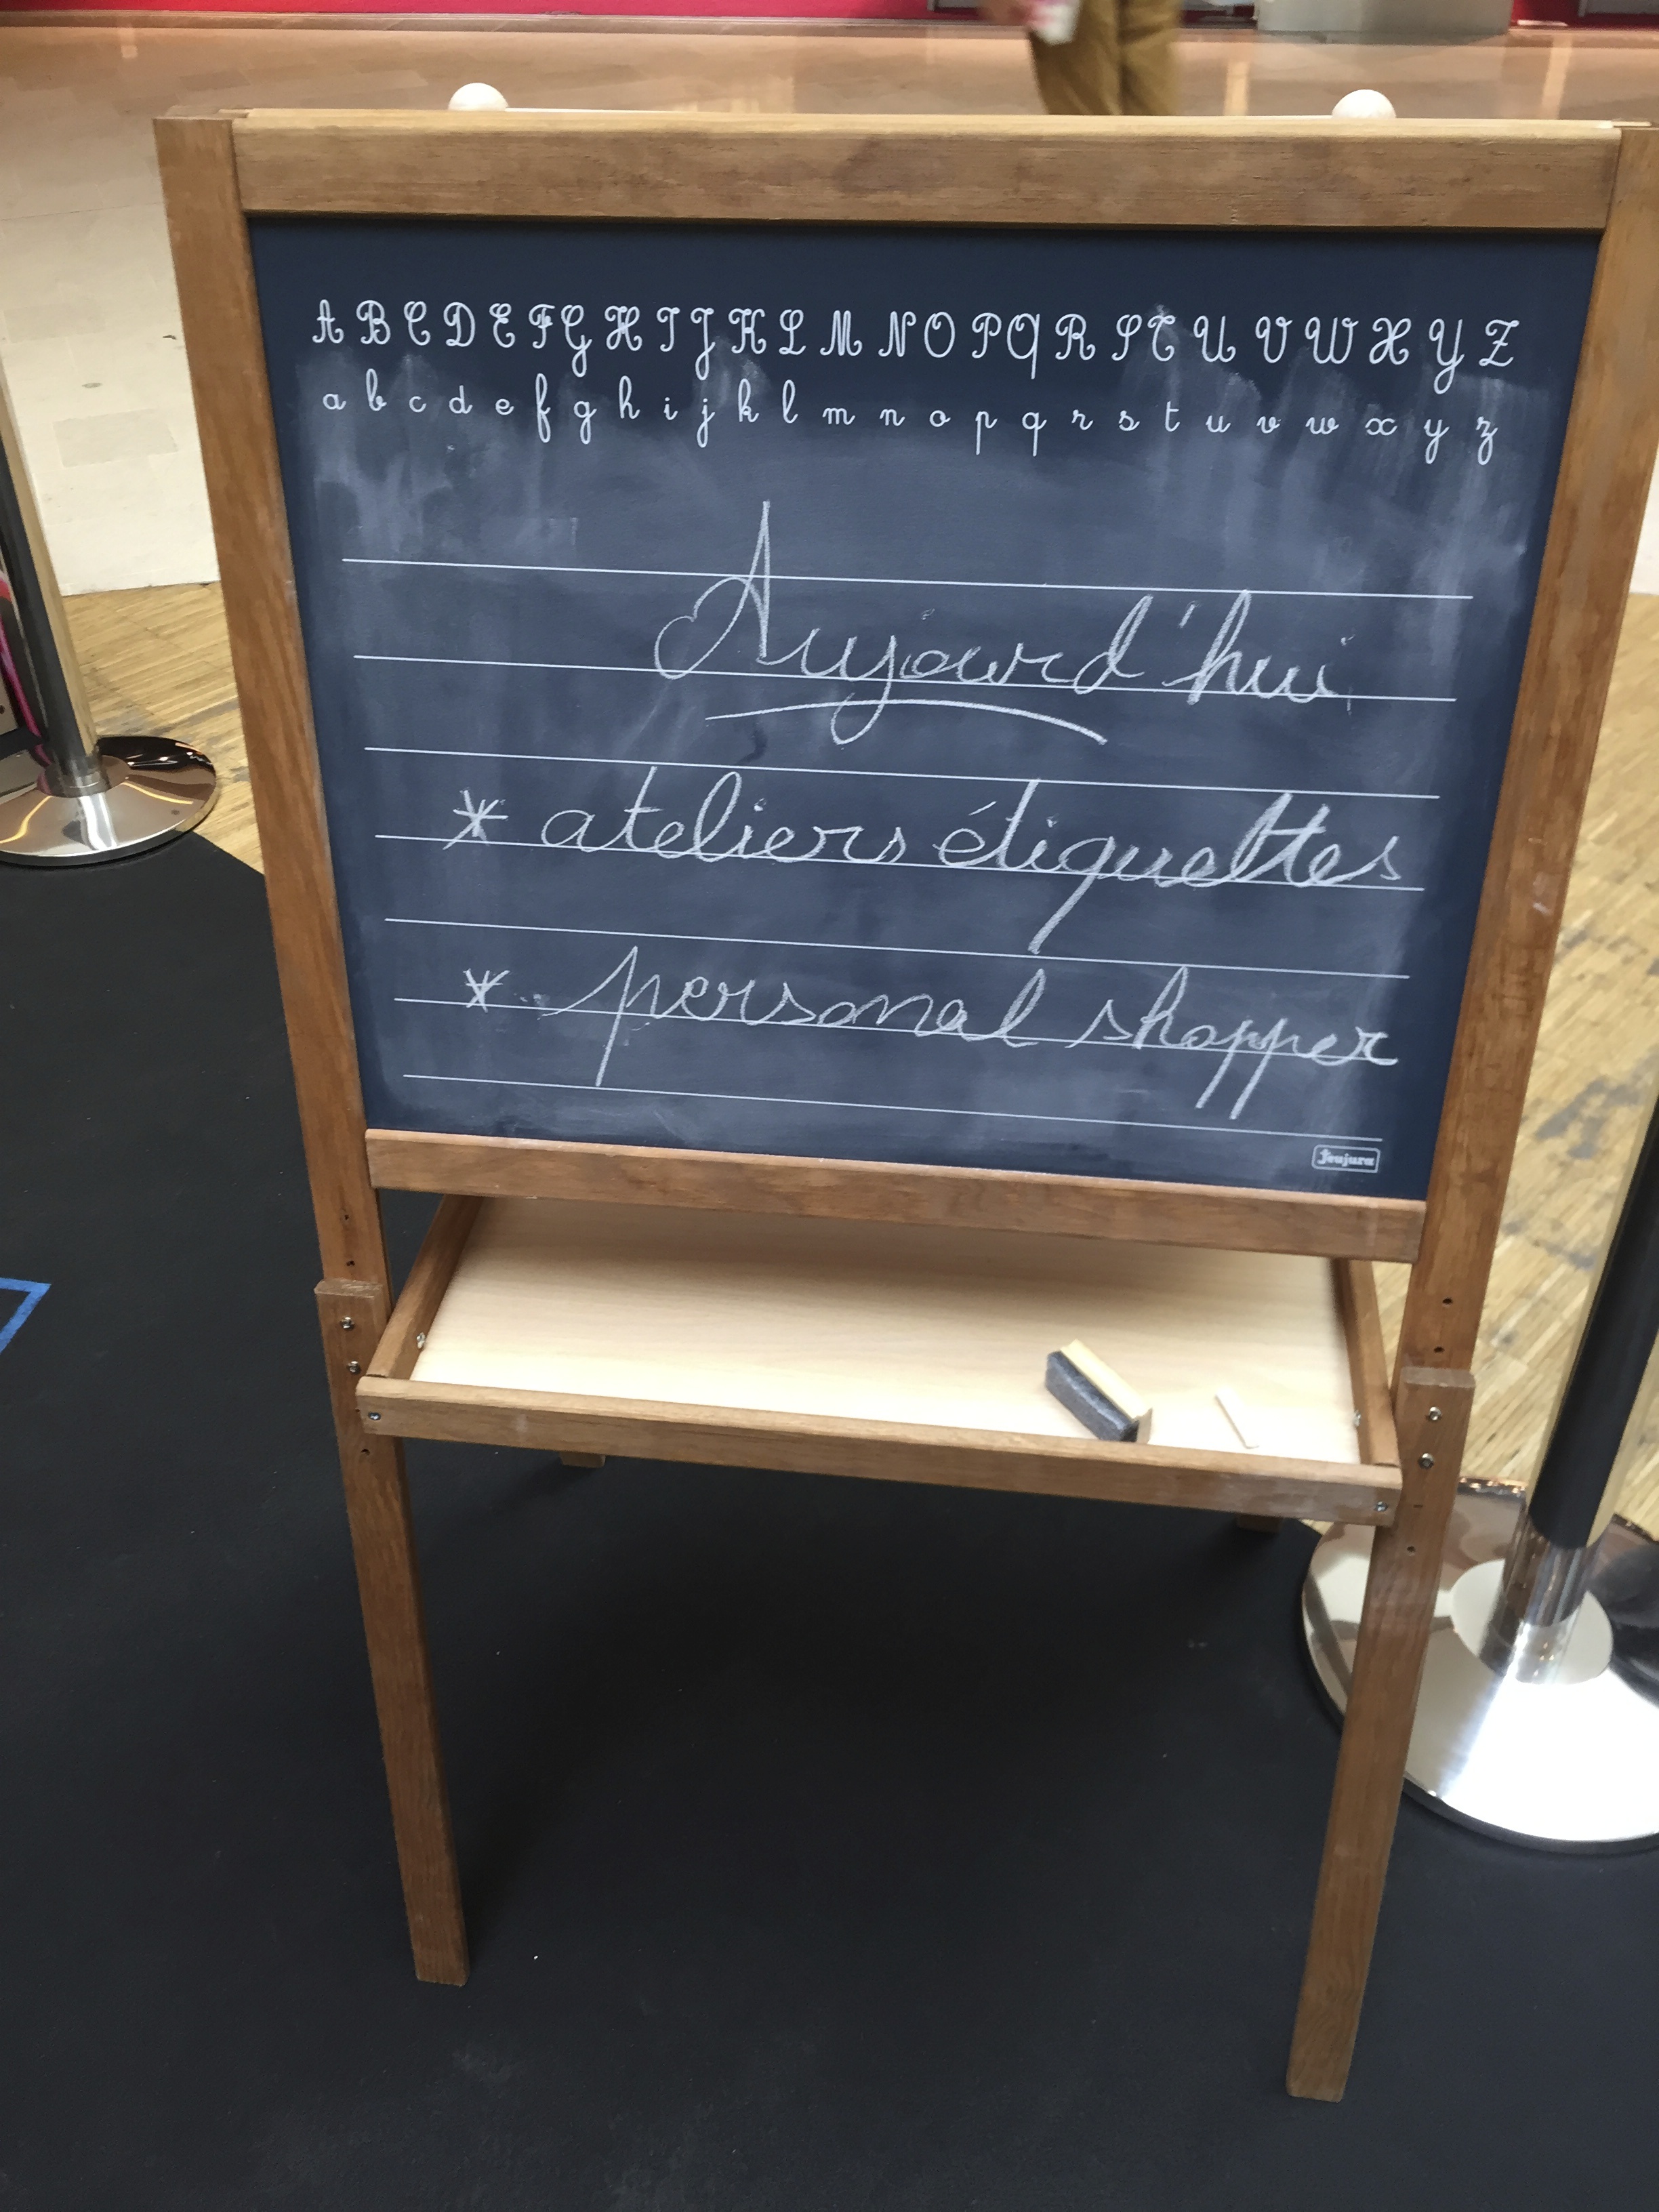 A B C D E F G H I J K L M N O P Q R S T U V W X Y Z
a b c d e f g h i j k l m n o p q r s t u v w x y z
Aujourd'hui
* ateliers étiquettes
* personal shopper
Jeujura